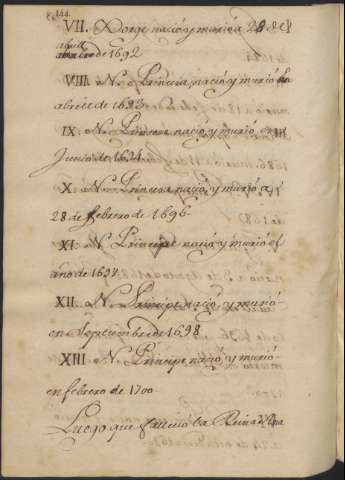 144.
VII. Xorge nació y murió a 28 de
abril
de 1692
VIII. N. Princesa, nació y murió en
abril de 1693.
IX. N. Principe nació y murió en
Junio de 1694.
X. N. Princesa nació, y murió a
28 de febrero de 1696.
XI. N. Principe nació y murió el
año de 1697.
XII. N. Principe nació, y murió
en Septiembre de 1698
XIII N. Principe nació, y murió
en febrero de 1700.
Luego que fallecio la Reina